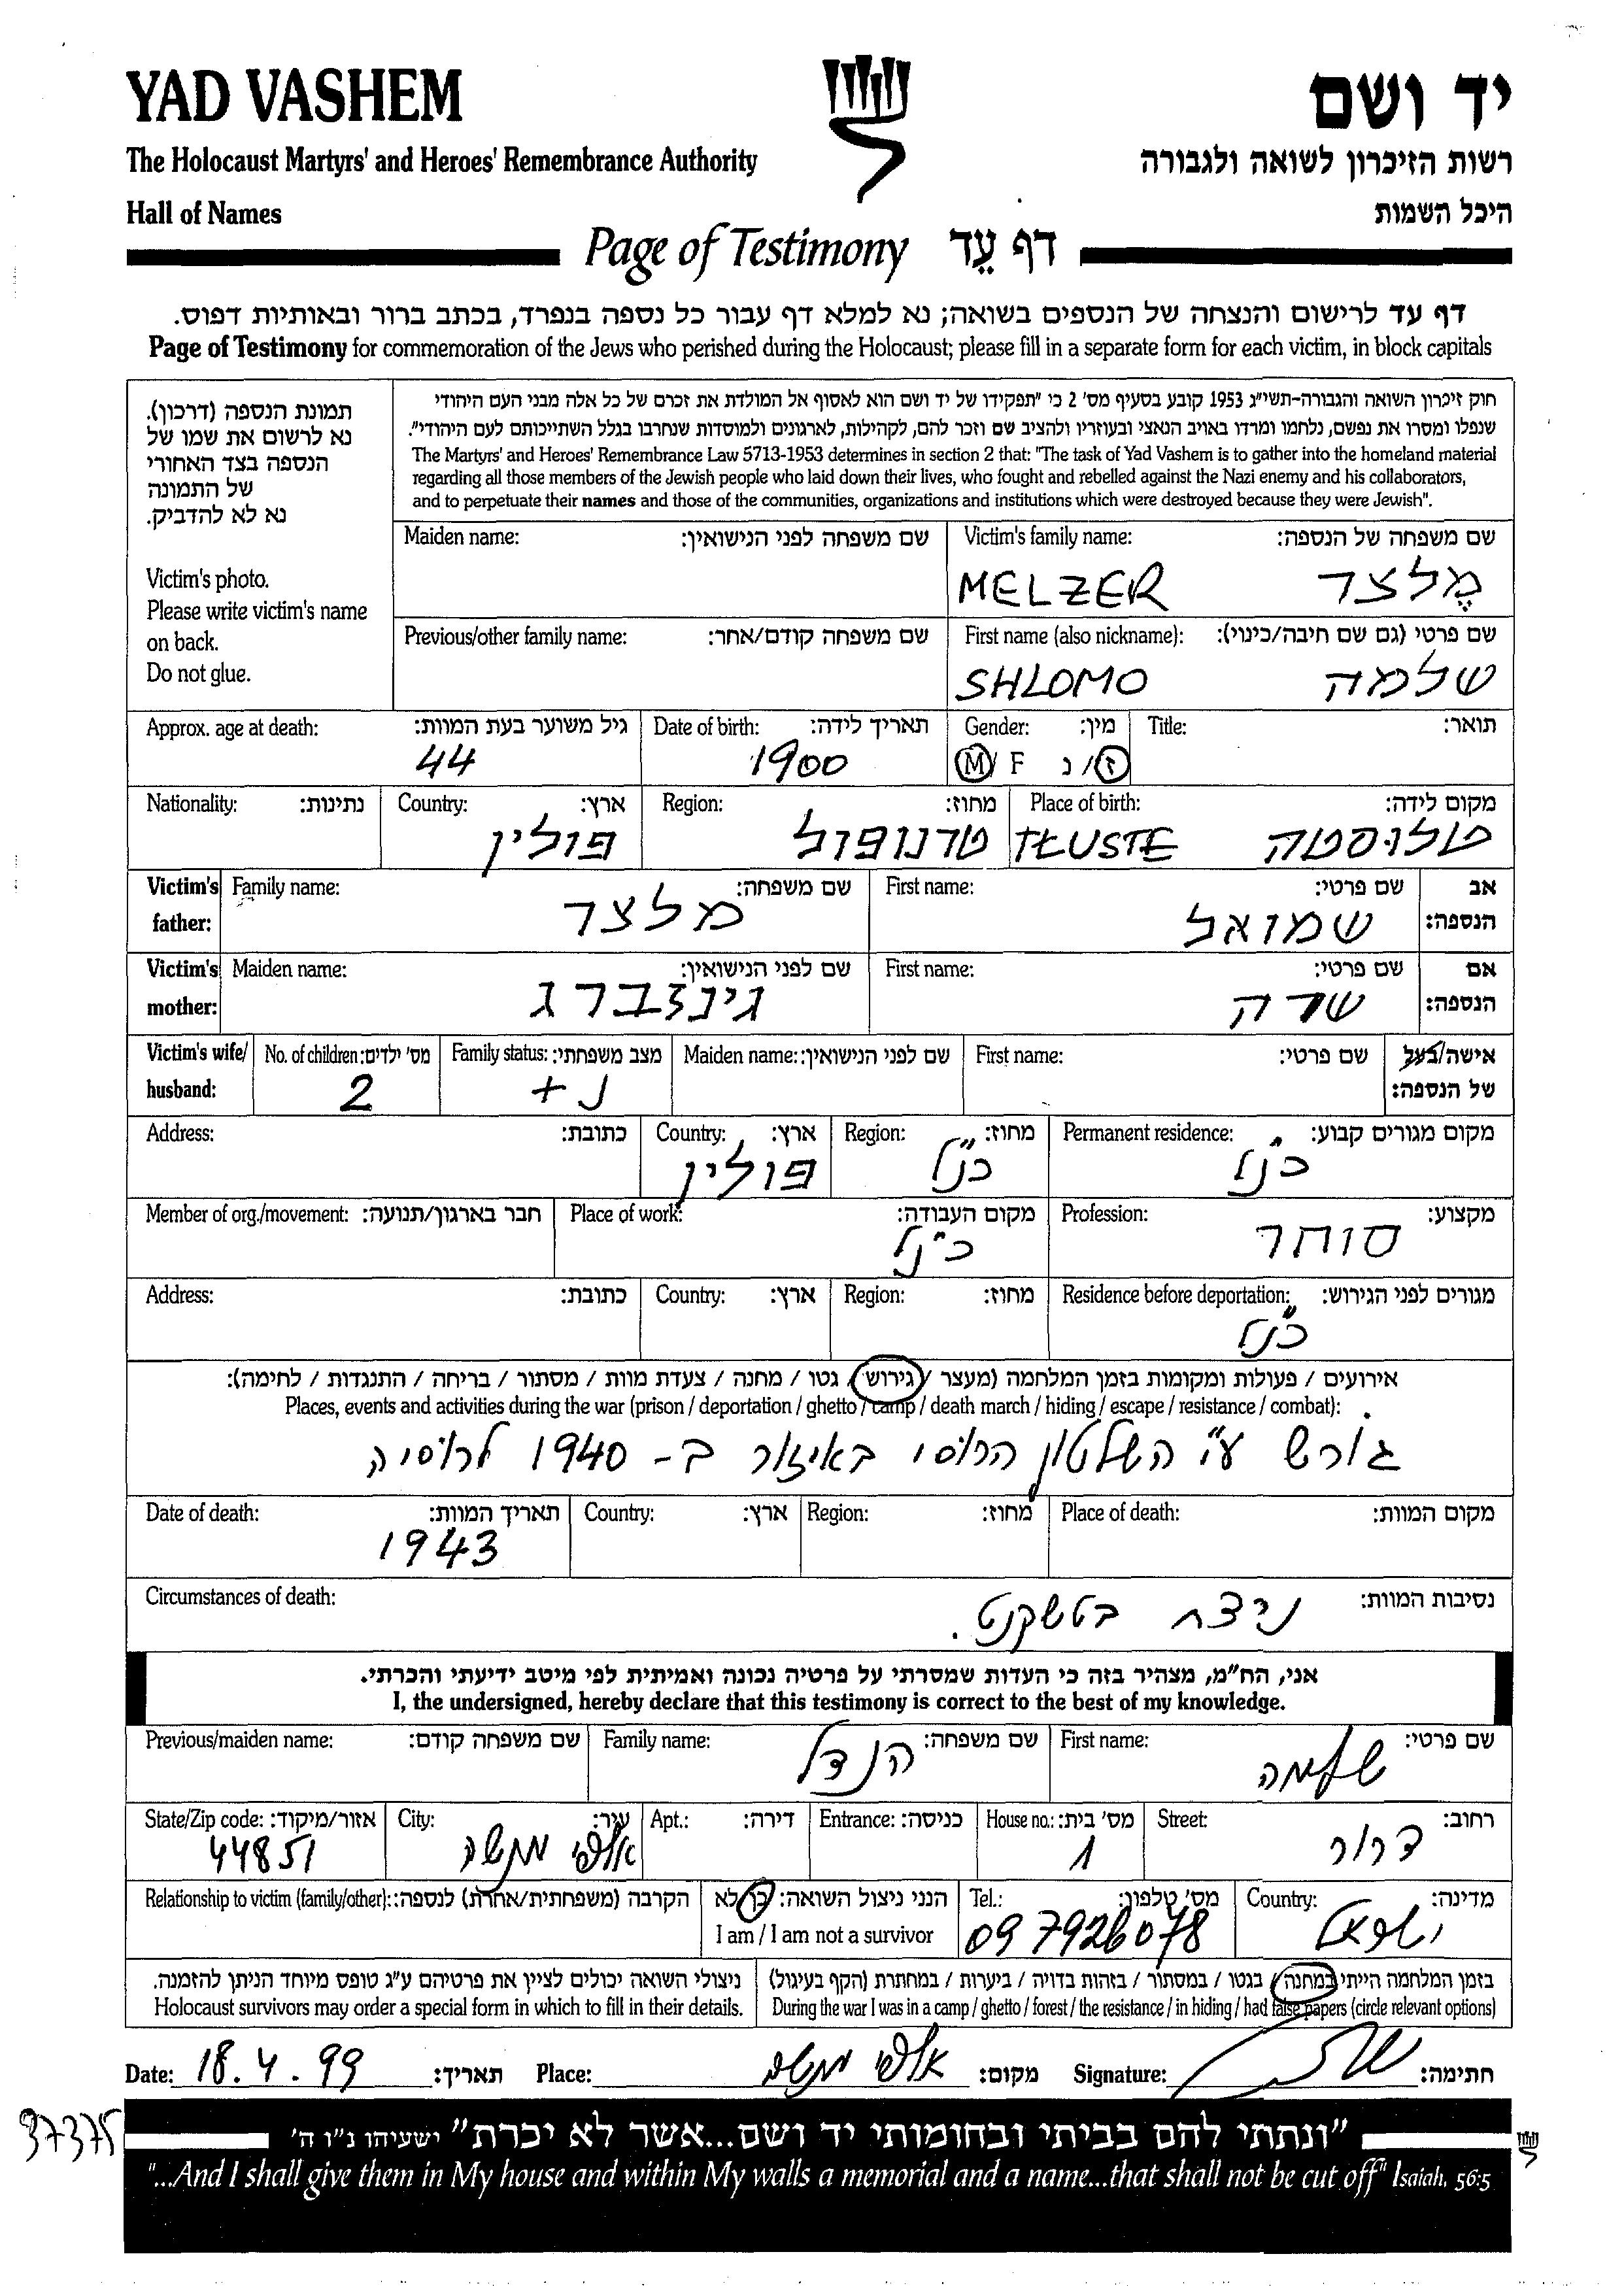 YAD VASHEM
יד ושם
The Holocaust Martyrs' and Heroes' Remembrance Authority
רשות הזיכרון לשואה ולגבורה
Hall of Names
היכל השמות
Page of Testimony דף עֵד
דף עד לרישום והנצחה של הנספים בשואה; נא למלא דף עבור כל נספה בנפרד, בכתב ברור ובאותיות דפוס.
Page of Testimony for commemoration of the Jews who perished during the Holocaust; please fill in a separate form for each victim, in block capitals
תמונת הנספה (דרכון).
נא לרשום את שמו של
הנספה בצד האחורי
של התמונה
נא לא להדביק.
Victim's photo.
Please write victim's name
on back.
Do not glue.
חוק זיכרון השואה והגבורה-תשי"ג 1953 קובע בסעיף מס' 2 כי "תפקידו של יד ושם הוא לאסוף אל המולדת את זכרם של כל אלה מבני העם היהודי
שנפלו ומסרו את נפשם, נלחמו ומרדו באויב הנאצי ובעוזריו ולהציב שם וזכר להם, לקהילות, לארגונים ולמוסדות שנחרבו בגלל השתייכותם לעם היהודי".
The Martyrs' and Heroes' Remembrance Law 5713-1953 determines in section 2 that: "The task of Yad Vashem is to gather into the homeland material
regarding all those members of the Jewish people who laid down their lives, who fought and rebelled against the Nazi enemy and his collaborators,
and to perpetuate their names and those of the communities, organizations and institutions which were destroyed because they were Jewish".
Maiden name: שם משפחה לפני הנישואין: Victim's family name: שם משפחה של הנספה:
MELZER מֶלצר
Previous/other family name: שם משפחה קודם/אחר: First name (also nickname): שם פרטי (גם שם חיבה/כינוי):
SHLOMO שלמה
Approx. age at death: גיל משוער בעת המוות: Date of birth: תאריך לידה: Gender: מין: Title: תואר:
44 1900 M/ F ז/ נ
Nationality: נתינות: Country: ארץ: Region: מחוז: Place of birth: מקום לידה:
פולין טרנופול TŁUSTE טלוסטה
Victim's father: Family name: שם משפחה: First name: שם פרטי: אב הנספה:
מלצר שמואל
Victim's mother: Maiden name: שם לפני הנישואין: First name: שם פרטי: אם הנספה:
גינזברג שרה
Victim's wife/ husband: No. of children: מס' ילדים: Family status: מצב משפחתי: Maiden name: שם לפני הנישואין: First name: שם פרטי: אישה/בעל של הנספה:
2 נ +
Address: כתובת: Country: ארץ: Region: מחוז: Permanent residence: מקום מגורים קבוע:
פולין כנ"ל כנ"ל
Member of org./movement: חבר בארגון/תנועה: Place of work: מקום העבודה: Profession: מקצוע:
כנ"ל סוחר
Address: כתובת: Country: ארץ: Region: מחוז: Residence before deportation: מגורים לפני הגירוש:
כנ"ל
אירועים / פעולות ומקומות בזמן המלחמה (מעצר / גירוש / גטו / מחנה / צעדת מוות / מסתור / בריחה / התנגדות / לחימה):
Places, events and activities during the war (prison / deportation / ghetto / camp / death march / hiding / escape / resistance / combat):
גורש ע"י השלטון הרוסי באיזור ב- 1940 לרוסיה
Date of death: תאריך המוות: Country: ארץ: Region: מחוז: Place of death: מקום המוות:
1943
Circumstances of death: נסיבות המוות:
נרצח בטשקנט.
אני, הח"מ, מצהיר בזה כי העדות שמסרתי על פרטיה נכונה ואמיתית לפי מיטב ידיעתי והכרתי.
I, the undersigned, hereby declare that this testimony is correct to the best of my knowledge.
Previous/maiden name: שם משפחה קודם: Family name: שם משפחה: First name: שם פרטי:
הנדל שלמה
State/Zip code: אזור/מיקוד: City: עיר: Apt.: דירה: Entrance: כניסה: House no.: מס' בית: Street: רחוב:
44851 אלפי מנשה 1 דרור
Relationship to victim (family/other): הקרבה (משפחתית/אחרת) לנספה: הנני ניצול השואה: כן/לא Tel.: מס' טלפון: Country: מדינה:
I am / I am not a survivor 09 7926078 ישראל
ניצולי השואה יכולים לציין את פרטיהם ע"ג טופס מיוחד הניתן להזמנה. בזמן המלחמה הייתי במחנה/ בגטו / במסתור / בזהות בדויה / ביערות / במחתרת (הקף בעיגול)
Holocaust survivors may order a special form in which to fill in their details. During the war I was in a camp / ghetto / forest / the resistance / in hiding / had false papers (circle relevant options)
Date: 18.4.99 תאריך: Place: אלפי מנשה מקום: Signature: חתימה:
37375
"ונתתי להם בביתי ובחומותי יד ושם...אשר לא יכרת" ישעיהו נ"ו ה'
"...And I shall give them in My house and within My walls a memorial and a name...that shall not be cut off" Isaiah, 56:5